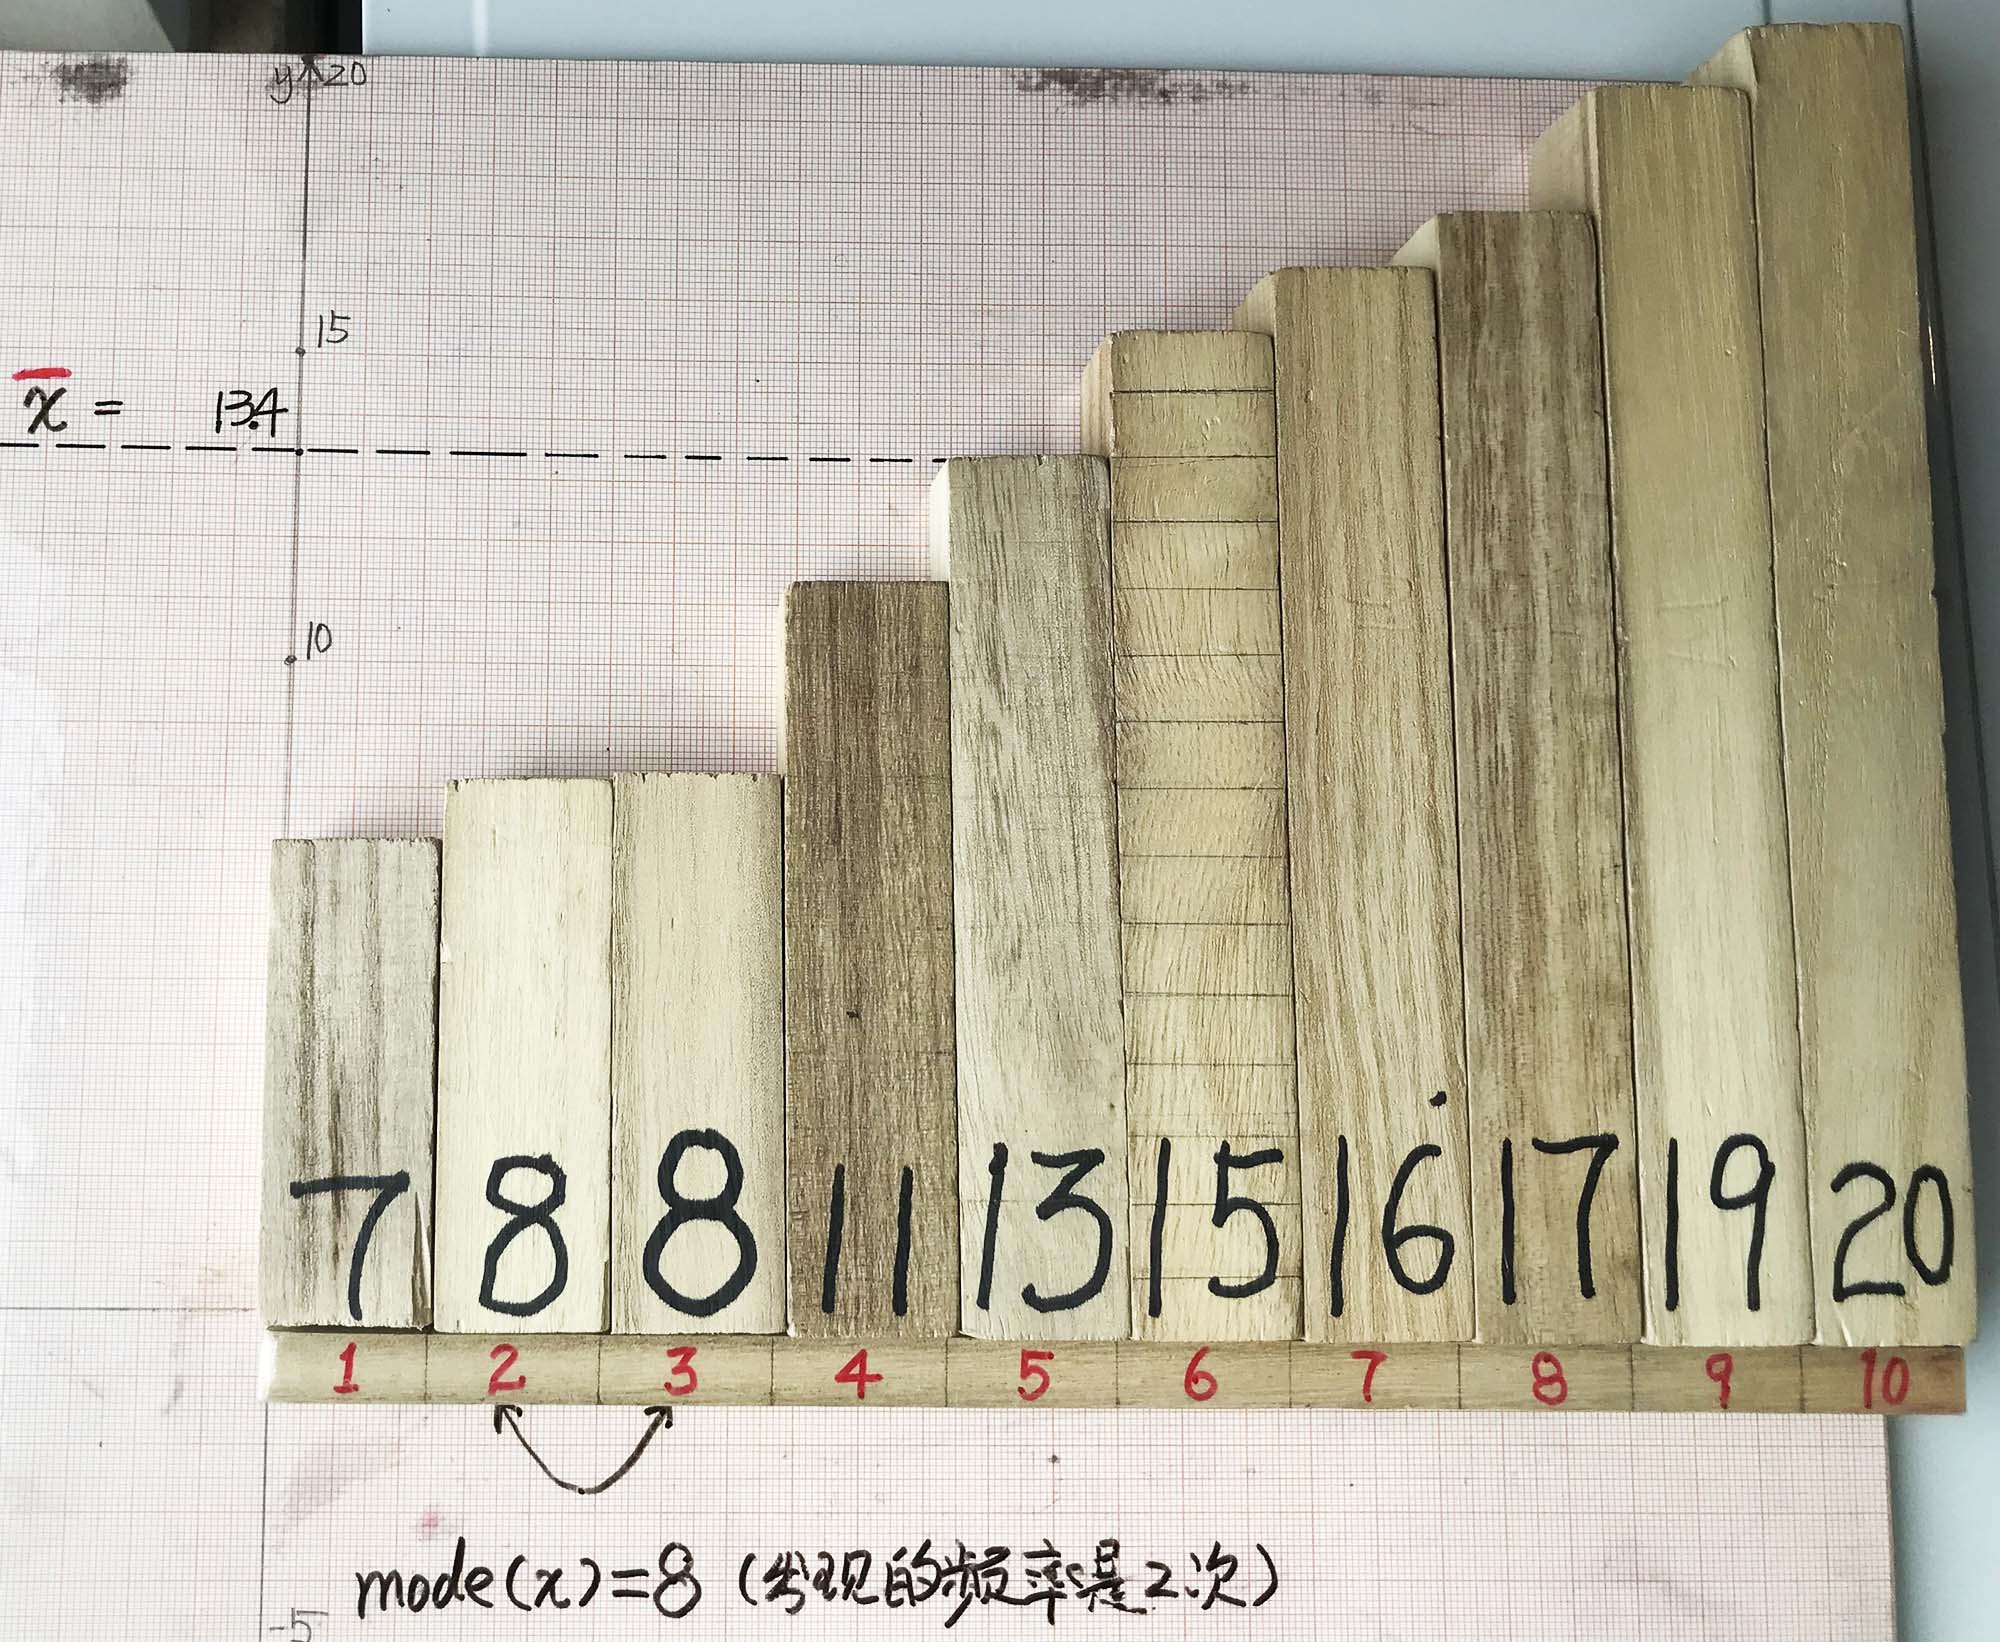 y 20
15
x̄ = 13.4
10
7 8 8 11 13 15 16 17 19 20
1 2 3 4 5 6 7 8 9 10
mode(x)=8 (发现的频率是2次)
-5